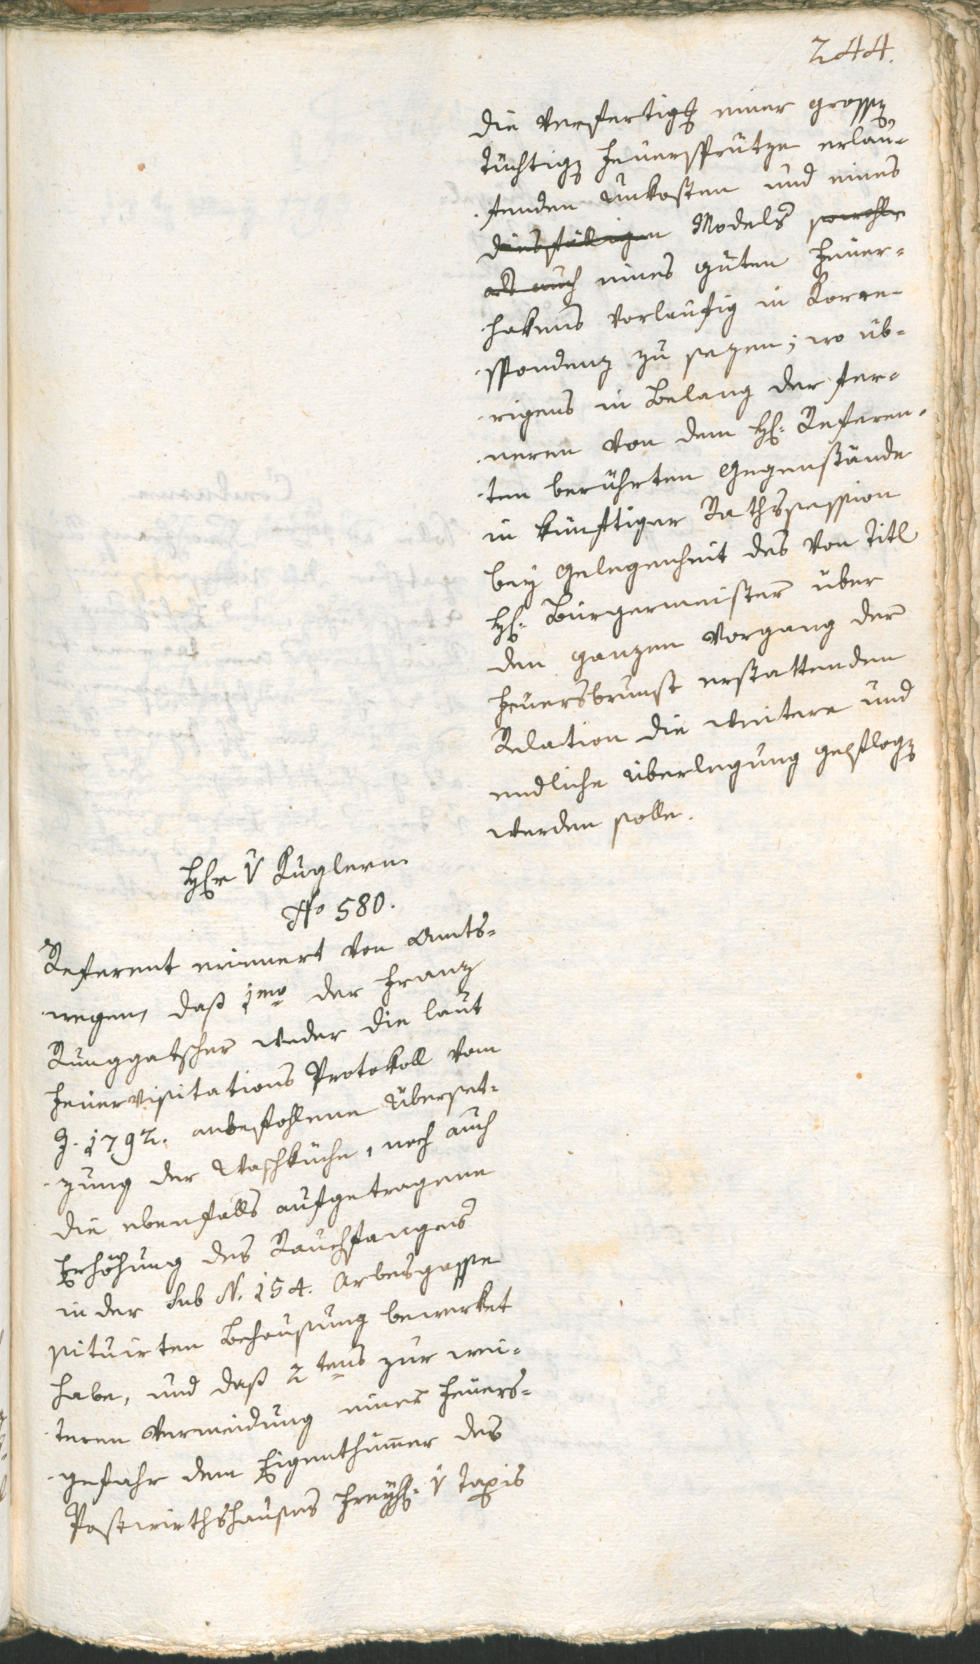 244.
die Verfertigg einer grossen
tüchtigen Feuersprütze erlau-
fenden Unkosten und eines
diesfälligen Models sowohl
als auch eines guten Feuer-
hakens vorlaufig in Korre-
spondenz zu sezen; wo üb-
rigens in Belang der fer-
neren von dem H: Referen-
ten berührten Gegenstände
in künftiger Rathssession
bey Gelegenheit des von Titl
H: Bürgermeister über
den ganzen Vorgang der
Feuersbrunst erstattenden
Relation die weitere und
endliche Überlegung gepflogen
werden solle.
Hr v Kuglern
No 580.
Referent erinnert von Amts-
wegen, daß 1mo der Franz
Runggatscher weder die laut
Feuervisitations Protokoll vom
J. 1792. anbefohlene Überset-
zung der Waschküche, noch auch
die ebenfalls aufgetragene
Erhöhung des Rauchfanges
in der sub N. 154. Arbesgasse
situirten Behausung bewerket
habe, und daß 2tens zur wei-
teren Vermeidung einer Feuers-
gefahr dem Eigenthümer des
Postwirthshauses Freyh: v Taxis